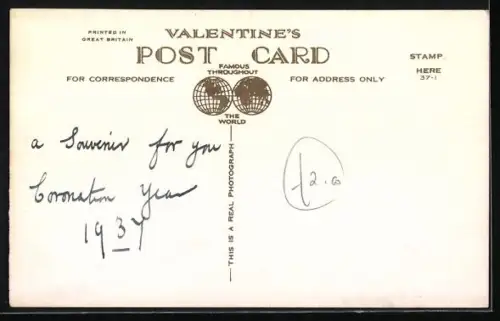 PRINTED IN
GREAT BRITAIN
VALENTINE'S
POST CARD
STAMP
HERE
37-1
FOR CORRESPONDENCE
FAMOUS
THROUGHOUT
THE
WORLD
FOR ADDRESS ONLY
THIS IS A REAL PHOTOGRAPH
a Souvenir for you
Coronation Year
1937